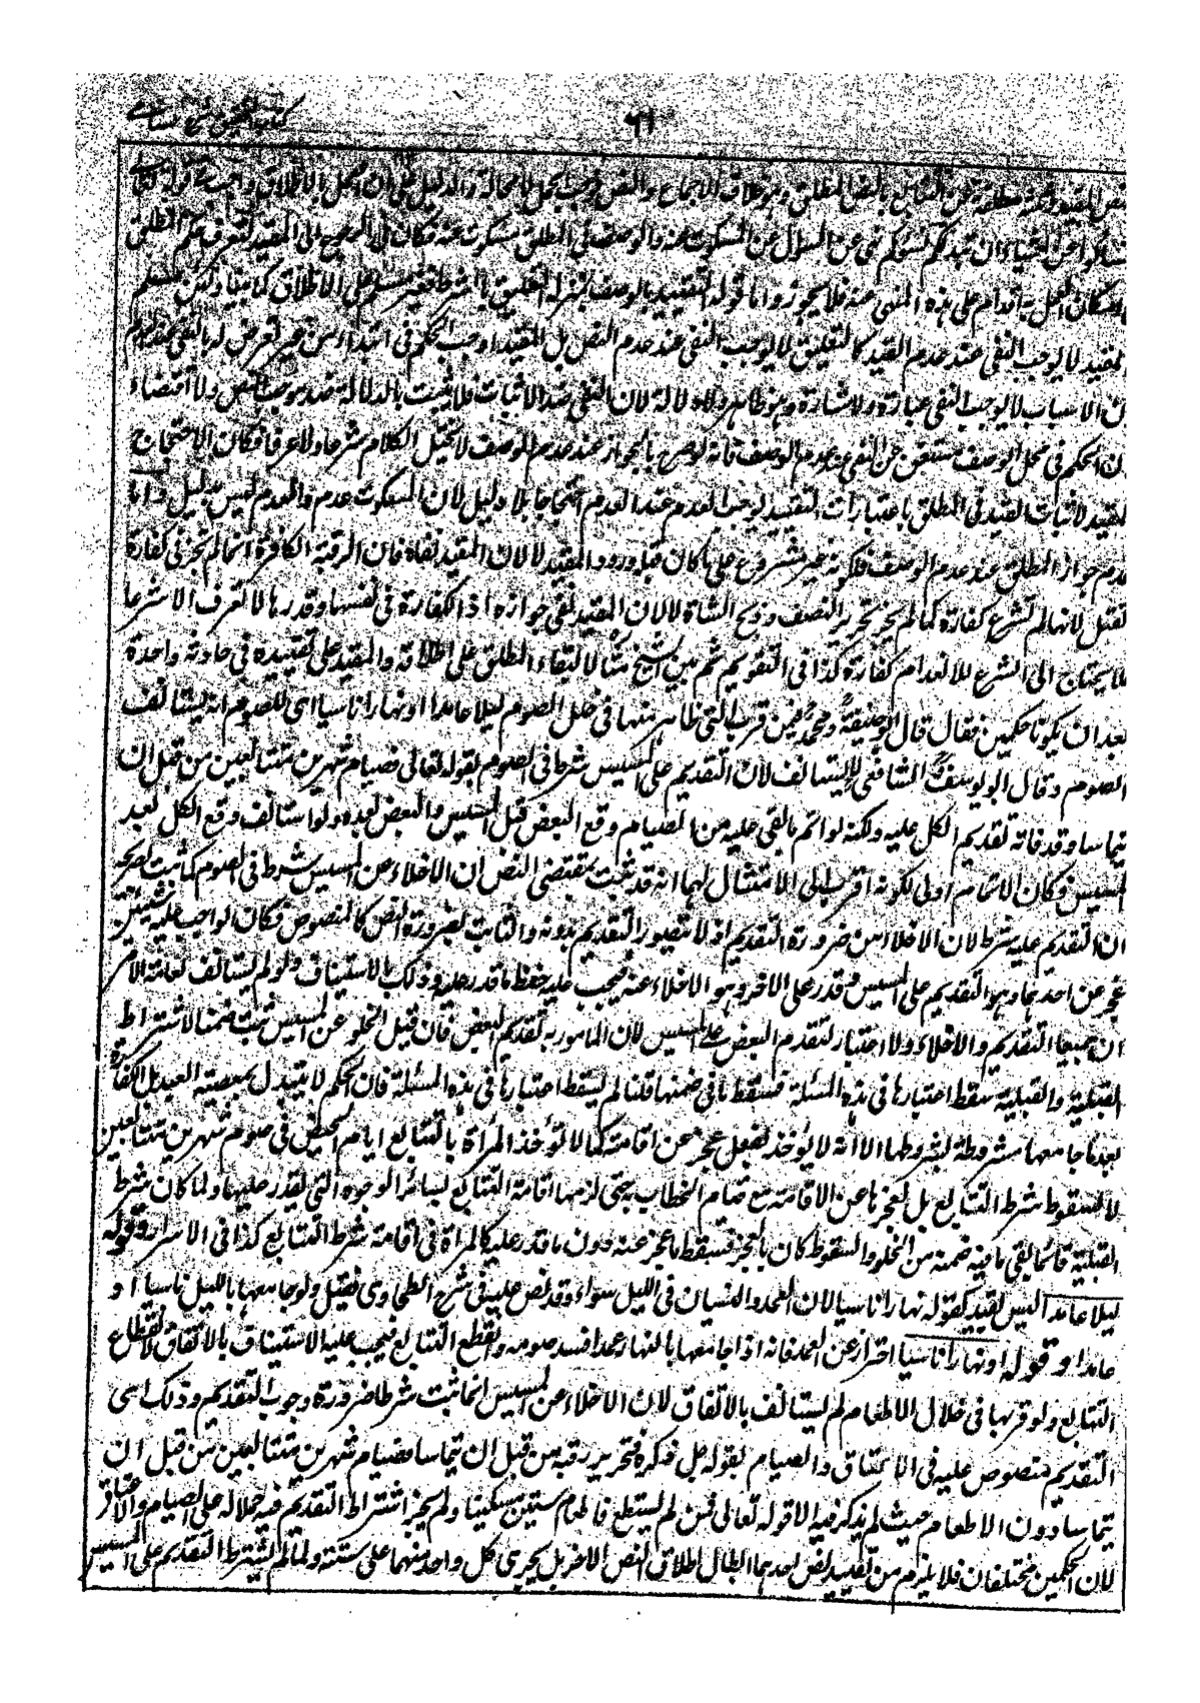 ٦١
كتاب التحقيق شرح حسامي
المقيد كلمة مطلقة فمن القائل بالنص المطلق وهو خلاف الاجماع والنص فوجب الحمل لا محالة والدليل على ان العمل بالاطلاق واجب قوله تعالى
لا تسألوا عن اشياء ان تبد لكم تسؤكم نهى عن السؤال عن المسكوت عنه والوصف في المطلق مسكوت عنه فكان في الرجوع الى المقيد لتعرف حكم المطلق
اقدام على هذه المنهى عنه فلا يجوز واما قوله التقييد بالوصف بمنزلة التعليق بالشرط فغير مسلم على الاطلاق كما بينا ولئن سلم
المقيد لا يوجب النفى عند عدم القيد كالتعليق لا يوجب النفى عند عدم النص بل المقيد اوجب الحكم في ابتداء من غير تعرض له بالنفى عند عدم
ان الاسباب لا يوجب النفى عبارة ولا اشارة وهو ظاهر ولا دلالة لان النفى ضد الاثبات فلا يثبت بالدلالة ضد موجب النص ولا اقتضاء
لان الحكم في محل الوصف مستغن عن النفى عند عدم الوصف فانه لو صرح بالجواز عند عدم الوصف لا يختل الكلام شرعا ولا عرفا فكان الاحتجاج
بالمقيد لاثبات القيد في المطلق باعتبار ان التقييد يوجب العدم عند العدم احتجاجا بلا دليل لان السكوت عدم والعدم ليس بدليل واما
عدم جواز المطلق عند عدم الوصف فلكونه غير مشروع على ما كان قبل ورود المقيد لا لان المقيد نفاه فان الرقبة الكافرة انما لم تجز في كفارة
القتل لانها لم تشرع كفارة كما لم يجز تحرير النصف وذبح الشاة لا لان المقيد نفى جوازه اذ الكفارة في نفسها وقدرها لا تعرف الا شرعا
فلا يحتاج الى الشرع للانعدام كفارة كذا في التقويم ثم بين الشيخ مثالا لبقاء المطلق على اطلاقه والمقيد على تقييده في حادثة واحدة
بعد ان يكونا حكمين فقال قال ابو حنيفة ومحمد فيمن قرب التي ظاهر منها في خلل الصوم ليلا عامدا او نهارا ناسيا اى للصوم انه يستانف
الصوم وقال ابو يوسف والشافعي لا يستانف لان التقديم على المسيس شرط في الصوم بقوله تعالى فصيام شهرين متتابعين من قبل ان
يتماسا وقد فاته تقديم الكل عليه ولكنه لو اتم ما بقى عليه من الصيام وقع البعض قبل المسيس والبعض بعده ولو استانف وقع الكل بعد
المسيس فكان الاتمام اولى لكونه اقرب الى الامتثال لهما انه قد ثبت بمقتضى النص ان الاخلاء عن المسيس شرط في الصوم كما ثبت بصريحه
ان التقديم عليه شرط لان الاخلاء من ضرورة التقديم اذ لا يتصور التقديم بدونه والثابت بضرورة النص كالمنصوص فكان الواجب عليه شيئين
عجز عن احدهما وهو التقديم على المسيس وقدر على الاخر وهو الاخلاء عنه فيجب عليه حفظ ما قدر عليه وذلك بالاستيناف ولو لم يستانف لفاته الامر
ان جميعا التقديم والاخلاء ولا اعتبار لتقدم البعض على المسيس لان المامور به تقديم البعض فان قيل الخلو عن المسيس ثبت ضمنا لاشتراط
القبلية والقبلية سقط اعتبارها في هذه المسئلة فسقط ما في ضمنها قلنا لم يسقط اعتبارها في هذه المسئلة فان الحكم لا يتبدل بمعصية العبد بل الكفارة
بعد ما جامعها مشروطة بشروطها الا انه لا يؤخذ بفعل عجز عن اقامته كما لا تؤخذ المرأة بالتتابع ايام الحيض في صوم شهرين متتابعين
لا لسقوط شرط التتابع بل لعجزها عن الاقامة مع قيام الخطاب به حتى لزمها اقامة التتابع بسائر الوجوه التي تقدر عليها ولما كان شرط
القبلية قائما بقى ما فيه ضمنه من الخلو والسقوط كان بالعجز فسقط ما عجز عنه دون ما قدر عليه كالمرأة في اقامة شرط التتابع كذا في الاسرار وقوله
ليلا عامدا ليس لقيد كقوله نهارا ناسيا لان العمد والنسيان في الليل سواء وقد نص عليه في شرح الطحاوى فقيل ولو جامعها بالليل ناسيا او
عامدا وقوله او نهارا ناسيا احتراز عن العمد فانه اذا جامعها بالنهار عمدا فسد صومه وانقطع التتابع فيجب عليه الاستيناف بالاتفاق لانقطاع
التتابع ولو قربها في خلال الاطعام لم يستانف بالاتفاق لان الاخلاء عن المسيس انما ثبت شرطا ضرورة وجوب التقديم وذلك اى
التقديم منصوص عليه في الاعتاق والصيام بقوله جل ذكره فتحرير رقبة من قبل ان يتماسا فصيام شهرين متتابعين من قبل ان
يتماسا دون الاطعام حيث لم يذكر فيه الا قوله تعالى فمن لم يستطع فاطعام ستين مسكينا ولم يجز اشتراط التقديم فيه حملا له على الصيام والاعتاق
لان الحكمين مختلفان فلا يلزم من تقييد نص احدهما ابطال اطلاق النص الاخر بل يجرى كل واحد منهما على سننه ولما لم يشترط التقديم على المسيس